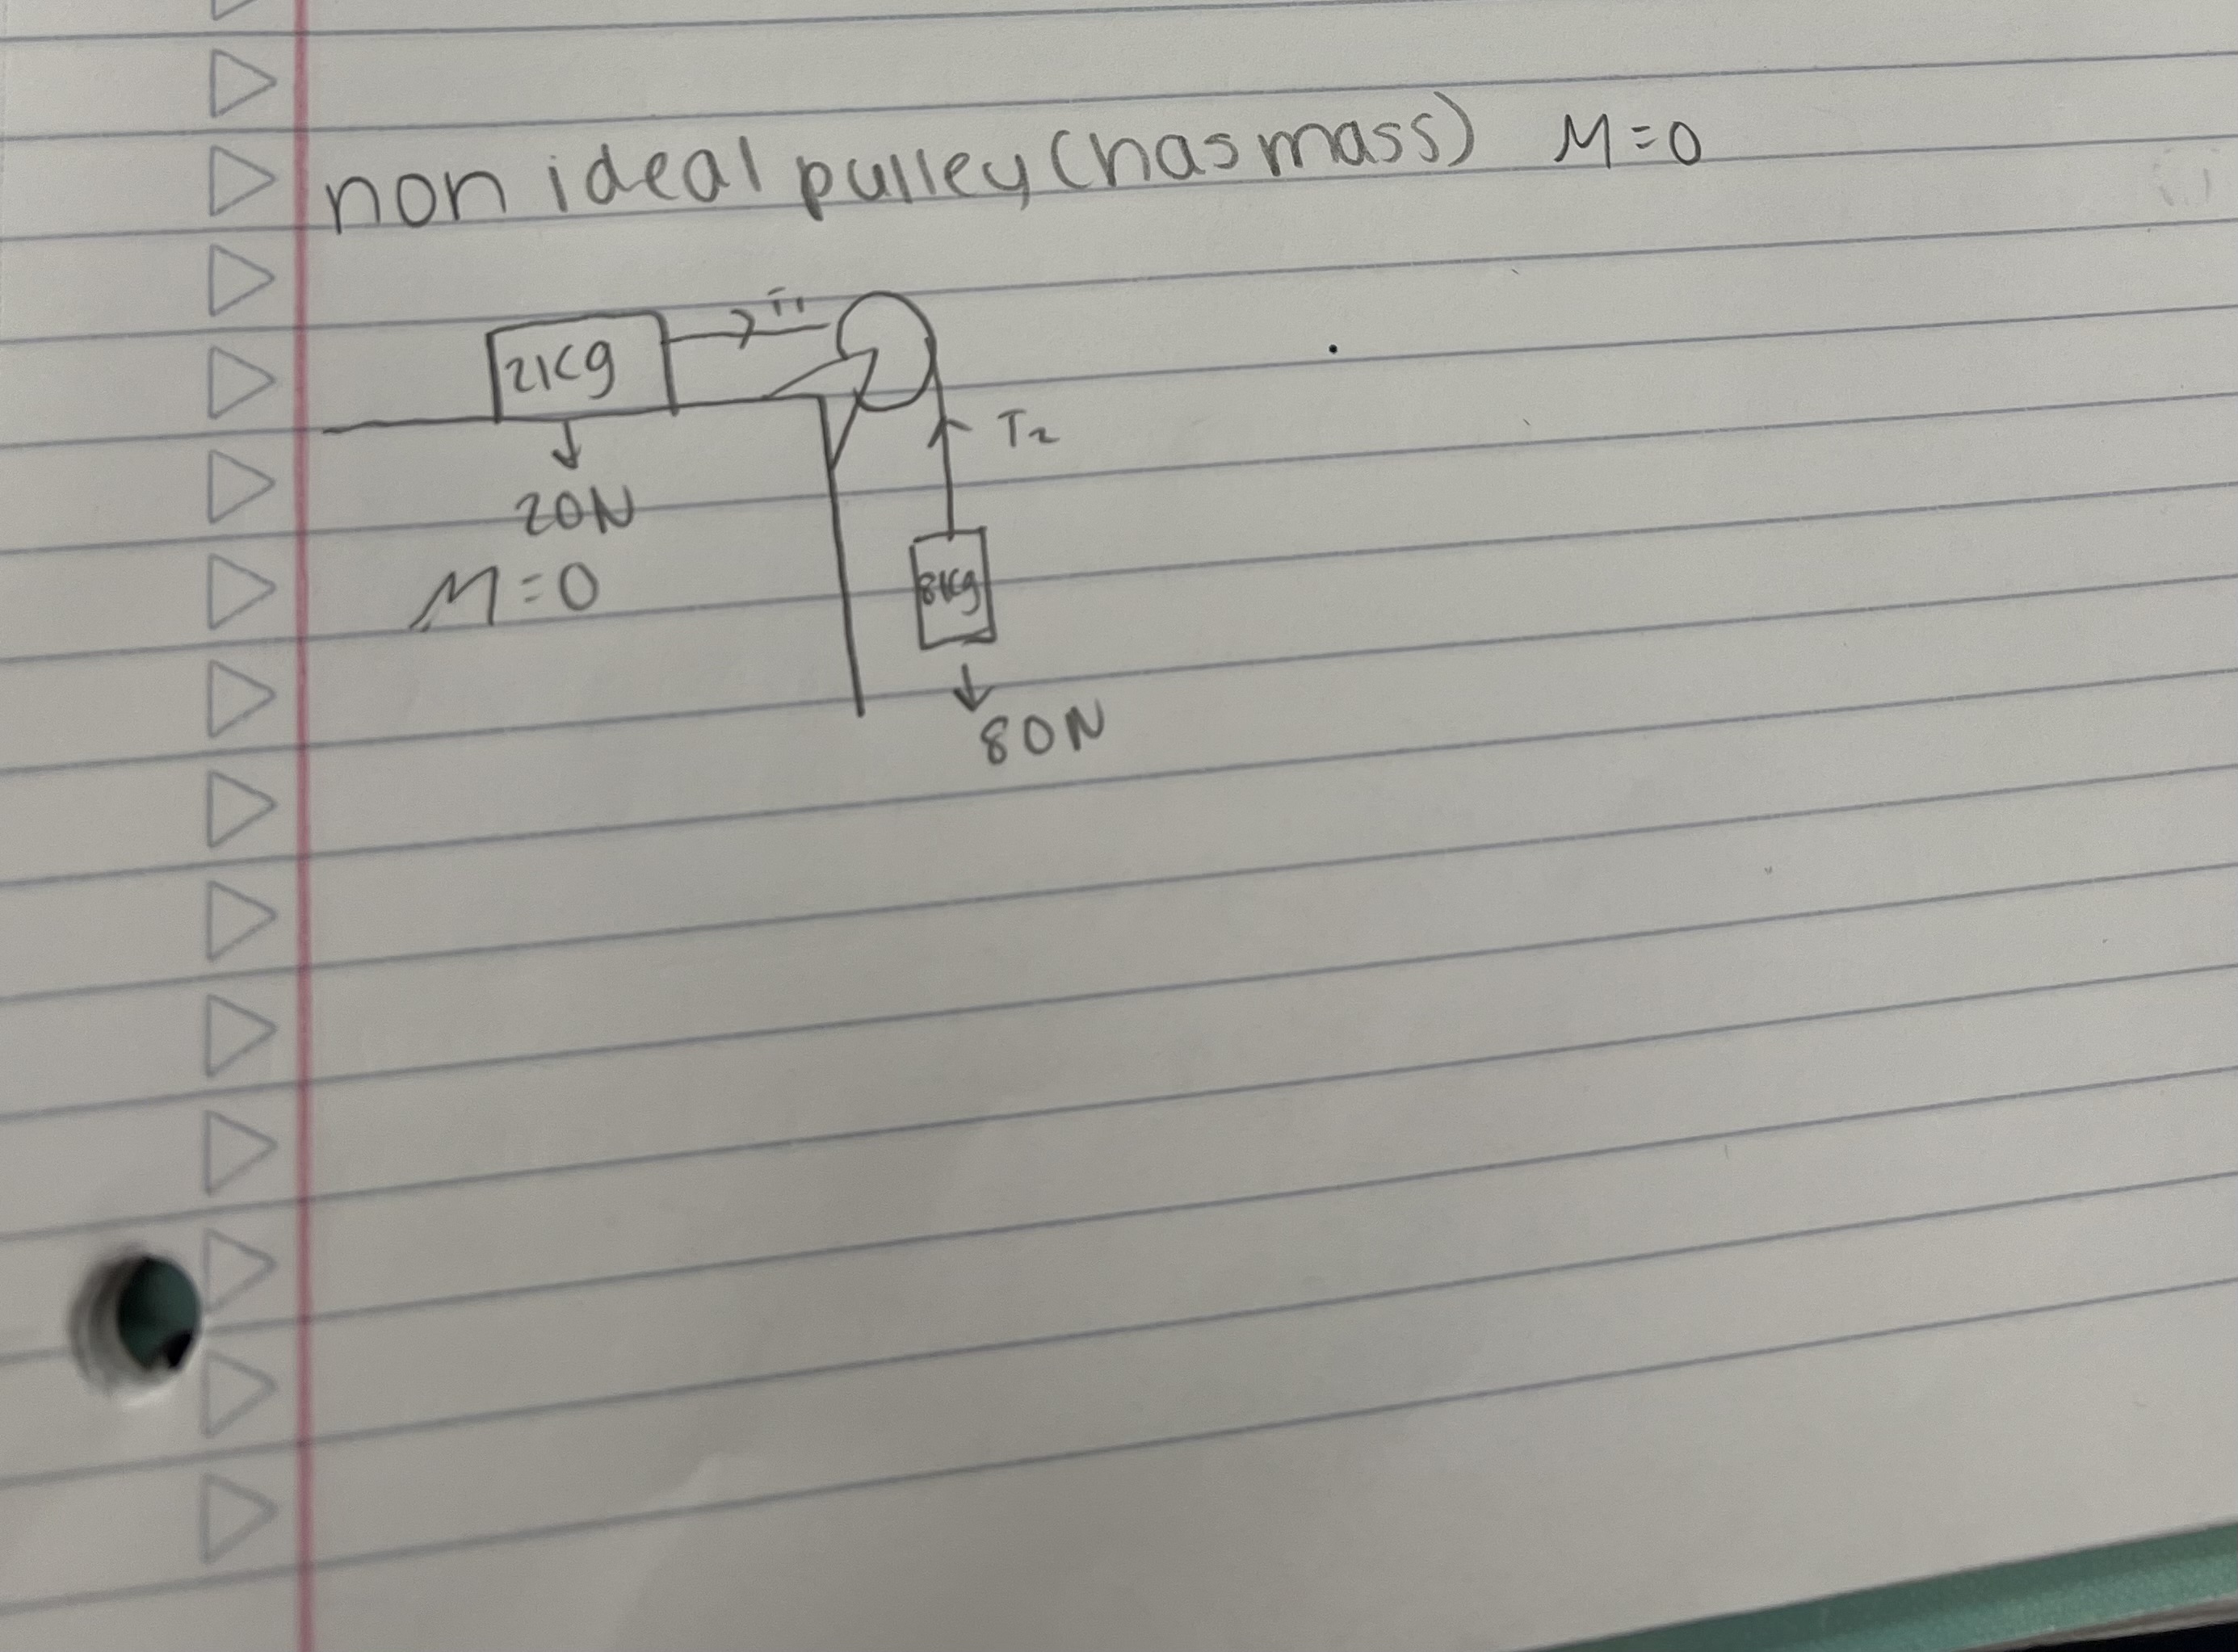 non ideal pulley (has mass) M=0
2kg
T1
T2
20N
M=0
8kg
80N